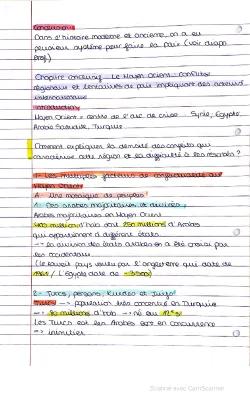 Conclusion:
Dans l'histoire moderne et ancienne, on a eu
plusieurs système pour faire la paix (voir diapo
prof)
Chapitre conclusif: Le Moyen Orient: conflits
régionaux et tentatives de paix impliquant des acteurs
internationaux
Introduction:
Moyen Orient = centre de l'arc de crise Syrie, Egypte
Arabie Saoudite, Turquie
Comment expliquer la densité des conflits qui
caractérise cette région et la difficulté à les résoudre?
1- Les multiples facteurs de conflictualité au
Moyen Orient
A- Une mosaïque de peuples
1- Des arabes majoritaires et divisés
Arabes majoritaires en Moyen Orient
400 millions d'hab dont 250 millions d'Arabes
qui appartiennent à différents états
--> la division des états arabes en a été tracée par
les occidentaux
(Le
pays
par l'angleterre qui date de
/ L'Egypte date de -3000)
2- Turcs, persans, Kurdes et Juifs
Turcs --> population très concentré en Turquie
--> 80 millions d'hab
Les Turcs et les Arabes sont en concurrence
--> inimitié
Scanné avec CamScanner